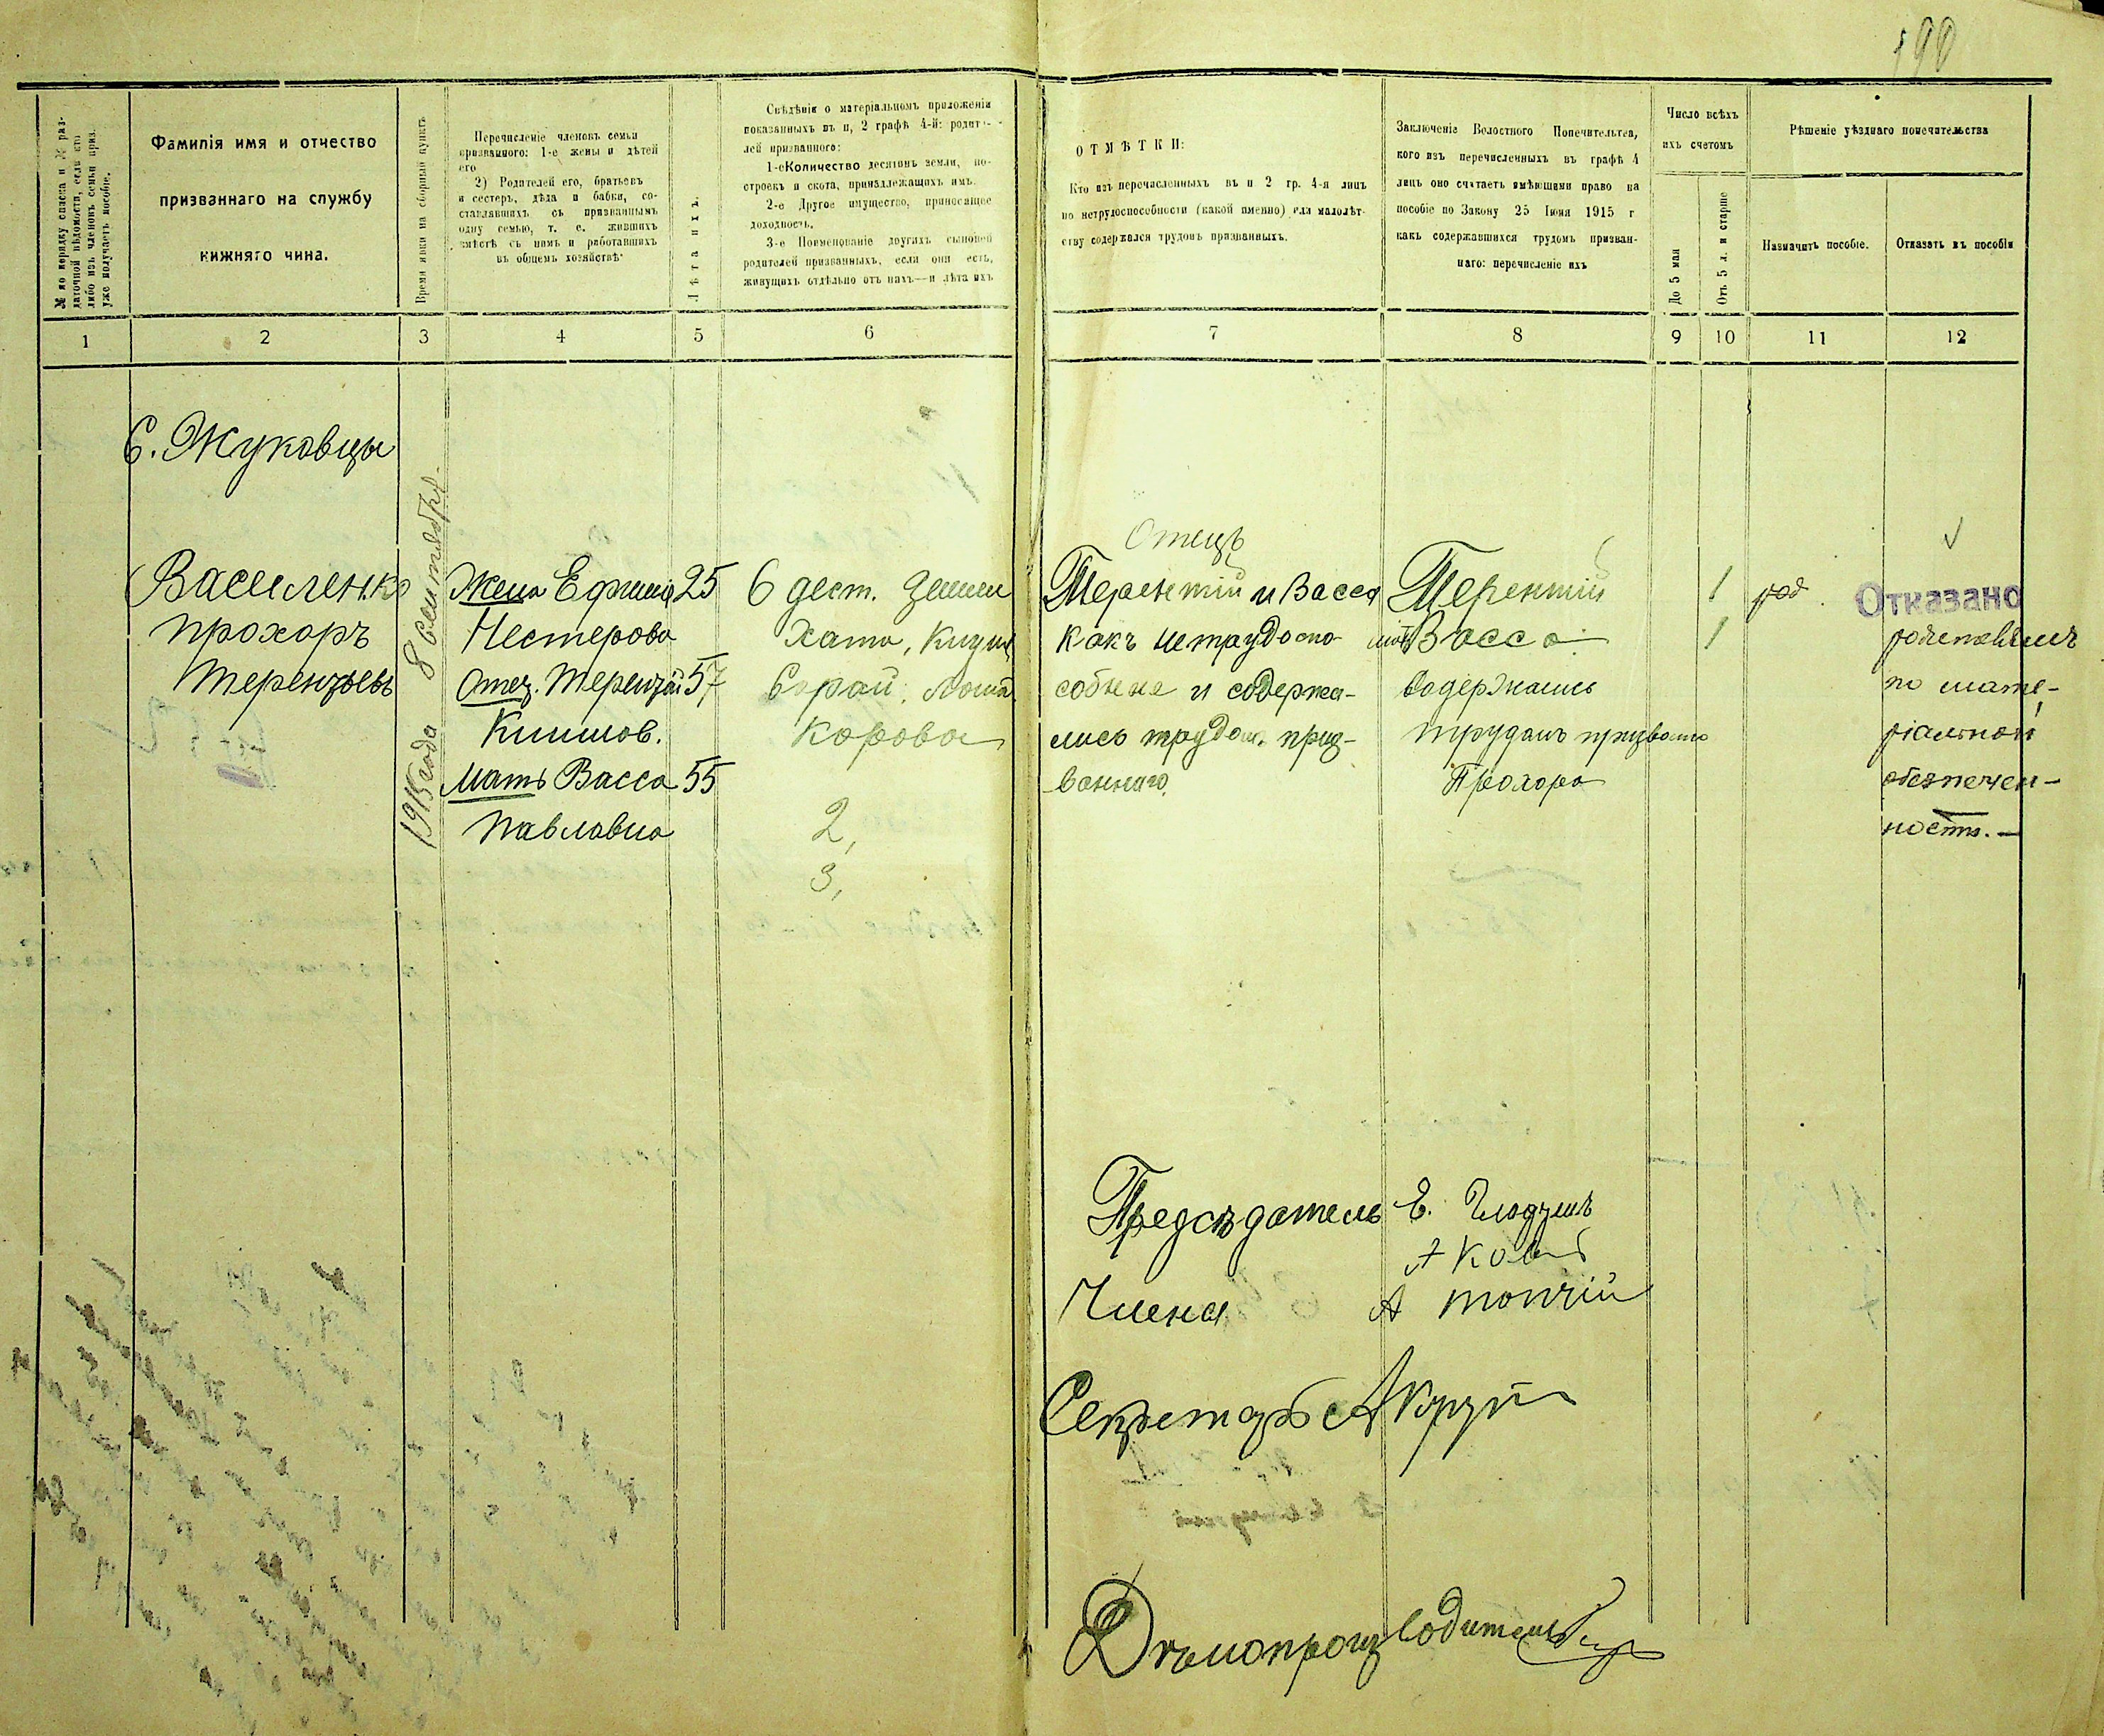 190
№ по порядку списка и № раз-
даточной вѣдомости, если кто
либо изъ членовъ семьи приз.
уже получаетъ пособіе.
Фамилія имя и отчество
призваннаго на службу
нижняго чина.
Время явки на сборный пунктъ
Перечисленіе членовъ семьи
призваннаго: 1-е жены и дѣтей
его
2) Родителей его, братьевъ
и сестеръ, дѣда и бабки, со-
ставлявшихъ съ призваннымъ
одну семью, т. е. жившихъ
вмѣстѣ съ нимъ и работавшихъ
въ общемъ хозяйствѣ
Лѣта ихъ.
Свѣдѣнія о матеріальномъ приложеніи
показанныхъ въ п, 2 графѣ 4-й: родите-
лей призваннаго:
1-е Количество десятинъ земли, по-
строекъ и скота, принадлежащихъ имъ.
2-е Другое имущество, приносящее
доходность.
3-е Поименованіе другихъ сыновей
родителей призванныхъ, если они есть,
живущихъ отдѣльно отъ нихъ—и лѣта ихъ
ОТМѢТКИ:
Кто изъ перечисленныхъ въ п 2 гр. 4-я лицъ
по нетрудоспособности (какой именно) или малолѣт-
ству содержался трудомъ призванныхъ.
Заключеніе Волостного Попечительства,
кого изъ перечисленныхъ въ графѣ 4
лицъ оно считаетъ имѣющими право на
пособіе по Закону 25 Іюня 1915 г
какъ содержавшихся трудомъ призван-
наго: перечисленіе ихъ
Число всѣхъ
ихъ счетомъ
До 5 мая
Отъ 5 л. и старше
Рѣшеніе уѣзднаго попечительства
Назначить пособіе.
Отказать въ пособіи
1 2 3 4 5 6 7 8 9 10 11 12
С. Жуковцы
Василенко
Прохоръ
Терентьевъ
1915 года 8 сентября
Жена Ефимія 25
Нестерова
Отец. Терентій 57
Климов.
Мать Васса 55
Павловна
6 дест. земли
Хата,
Сарай. Лошад.
Корова
2,
3,
Отецъ
Терентій и Васса
какъ нетрудоспо-
собные и содержа-
лись трудом. приз-
ваннаго.
Терентій
мать Васса
Содержались
трудомъ призвано
Прохора
1
1
род.
Отказано
родителямъ
по мате-
ріальной
обезпечен-
ности. —
Предсѣдатель Е.
А
Члена А Топчій
Секретарь
Дѣлопроизводитель